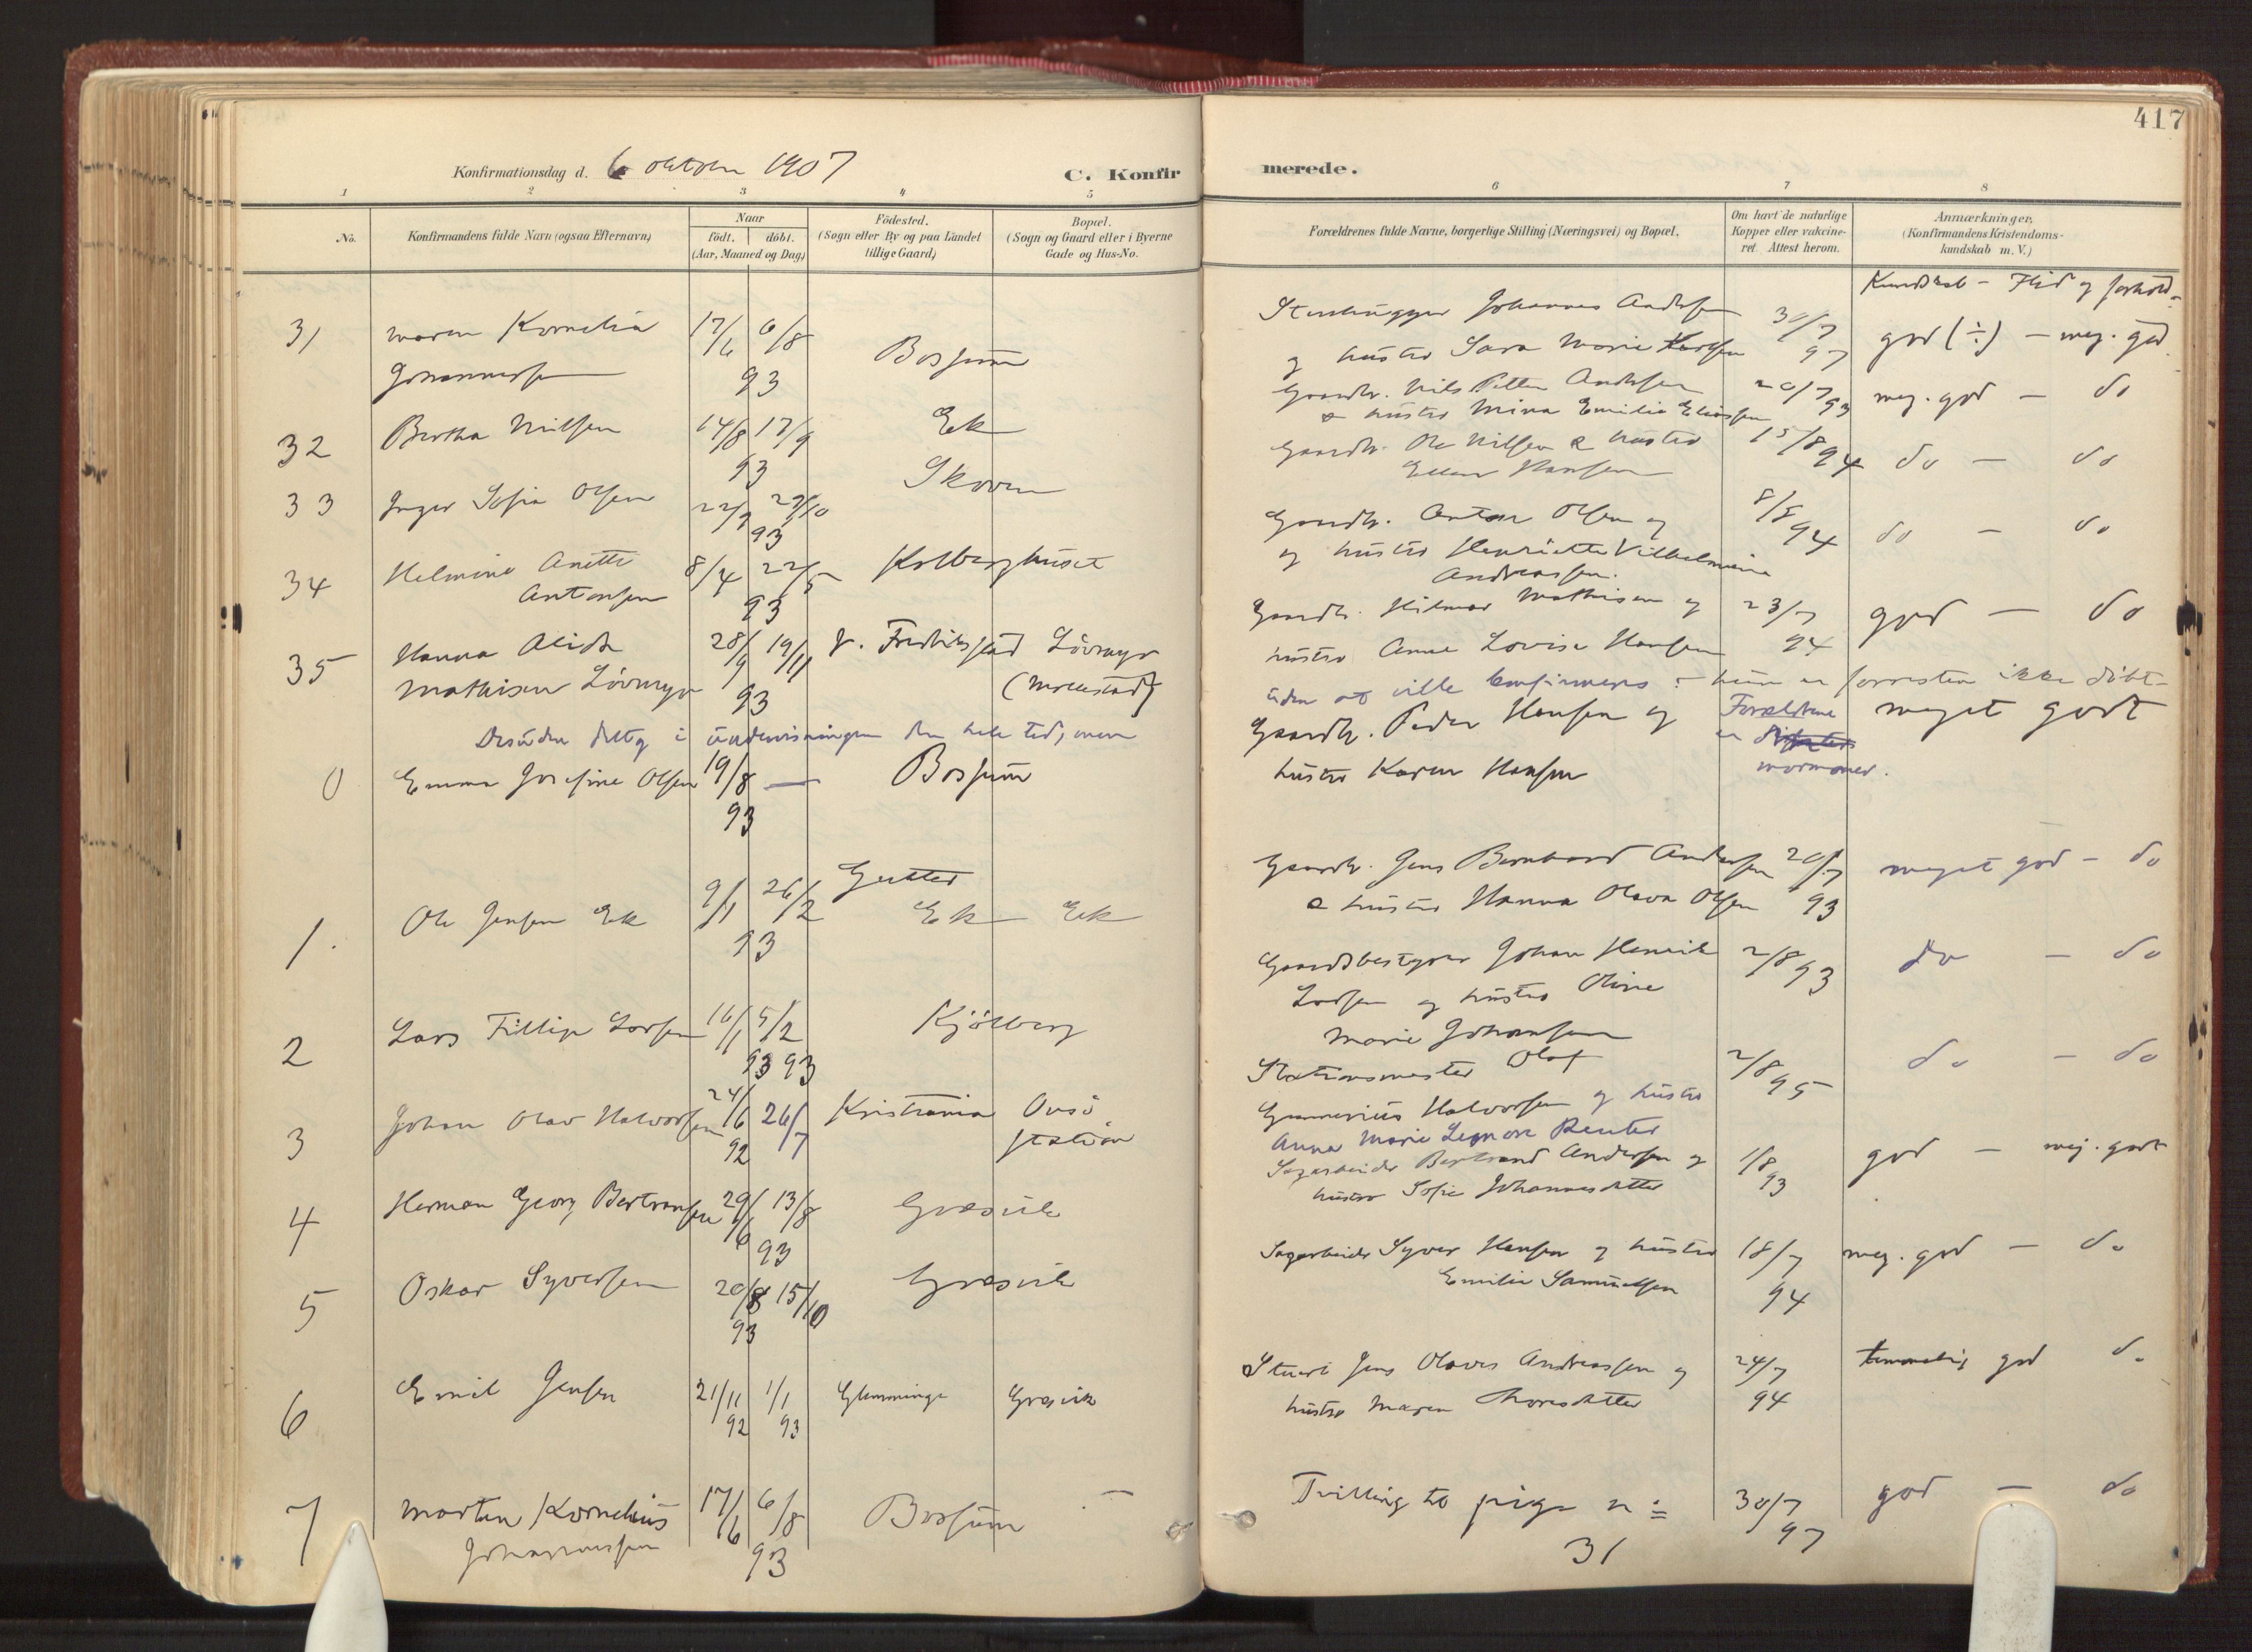 417
Konfirmationsdag d. 6 oktober 1907
C. Konfirmerede.
1 2 3 4 5 6 7 8
No.
Konfirmandens fulde Navn (ogsaa Efternavn)
Naar
født. døbt.
(Aar, Maaned og Dag)
Födested.
(Sogn eller By og paa Landet
tillige Gaard)
Bopæl.
(Sogn og Gaard eller i Byerne
Gade og Hus-No.
Forældrenes fulde Navne, borgerlige Stilling (Næringsvei) og Bopæl.
Om havt de naturlige
Kopper eller vakcine-
ret. Attest herom.
Anmærkninger,
(Konfirmandens Kristendoms-
kundskab m. V.)
Kundskab - Flid og forhold
31 Maren Kornelia 17/6 6/8
Johannessen 93 Bossum
Stenhugger Johannes Andersen 30/7
og hustru Sara Marie Karlsen 97 god (÷) - meg. god
32 Bertha Nilsen 14/8 17/9 Ek
93
Gaardbr. Nils Petter Andersen 20/7 93 meg. god - do
& hustru Mina Emilie Eliassen
33 Inger Sofia Olsen 22/9 29/10 Skoven
93
Gaardbr. Ole Nilsen & hustru 15/8 94 do - do
Ellen Hansen
34 Helmine Anette 8/4 22/5 Kolberghuset
Antonsen 93
Gaardbr. Anton Olsen og 8/8 94 do - do
og hustru Henriette Vilhelmine
Andreassen.
35 Hanna Alida 28/9 19/11 V. Fredrikstad Lövmyr
Mathisen Lövmyr 93
Gaardbr. Hilmar Mathisen og 23/7 god - do
hustru Anne Lovise Hansen 94
Desuden deltog i undervisningen den hele tid, men
uden at ville konfirmeres : hun er forresten ikke döbt -
0 Emma Josefine Olsen 19/8 — Bossum
93
Gaardbr. Peder Hansen og Forældrene meget godt
hustru Karen Hansen er
mormoner.
Gutter
1. Ole Jensen Ek 9/1 26/2 Ek Ek
93
Gaardbr. Jens Bernhard Andersen 20/7 meget god - do
& hustru Hanna Olava Olsen 93
2 Lars Fillip Larsen 16/1 5/2 Kjölberg
93 93
Gaardsbestyrer Johan Henrik 2/8 93 do - do
Larsen og hustru Oline
Marie Johansen
3 Johan Olav Halvorsen 24/6 26/7 Kristiania Onsö
92 station
Stationsmester Olaf 2/8 95 do - do
Gunnerius Halvorsen og hustru
Anna Marie Leonore Reuter
4 Herman Georg Bertransen 29/6 13/8 Græsvik
93
Sagarbeider Bertrand Andersen og 1/8 god - meg. godt
hustru Sofie Johannesdatter 93
5 Oskar Syversen 20/8 15/10 Græsvik
93
Sagarbeider Syver Hansen og hustru 18/7 meg. god - do
Emilie Samuelsen 94
6 Emil Jensen 21/11 1/1 Glemminge Græsvik
92 93
Stuert Jens Olaves Andreassen og 24/7 temmelig god do
hustru Maren Thoresdatter 94
7 Morten Kornelius 17/6 6/8 Bossum —
Johannessen 93
Tvilling til pige no 30/7 god - do
31 97